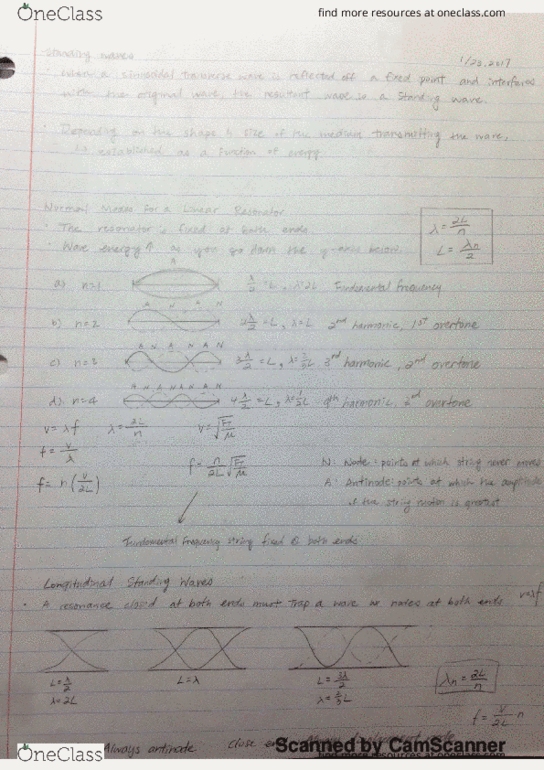 OneClass
find more resources at oneclass.com
1/23.2017
Standing waves
when a sinusoidal traverse wave is reflected off a fixed point and interferes
with the original wave, the resultant wave is a standing wave.
Depending on the shape & size of the medium transmitting the wave,
is established as a function of energy
Normal Modes for a Linear Resonator
· The resonator is fixed at both ends.
· Wave energy ↑ as you go down the y-axis below.
λ = 2L/n
L = λn/2
a) n=1 A λ/2 = L, λ=2L Fundamental frequency
b) n=2 A N A N 2λ/2 = L, λ=L 2nd harmonic, 1st overtone
c) n=3 A N A N A N 3λ/2 = L, λ=2/3L 3rd harmonic, 2nd overtone
d) n=4 A N A N A N 4λ/2 = L, λ=1/2L 4th harmonic, overtone
v = λf λ = 2L/n v = √FT/μ
f = v/λ
f = n/2L √FT/μ
f = n(v/2L)
N: Node: points at which string never moves
A: Antinode: points at which the amplitude
of the string motion is greatest
Fundamental frequency string fixed @ both ends
Longitudinal Standing Waves
· A resonance closed at both ends must trap a wave w nodes at both ends
v=λf
L = λ/2
λ=2L
L=λ
L = 3λ/2
λ = 2/3L
λn = 2L/n
f = v/2L n
Always antinode
close
Always displacement node
Scanned by CamScanner
OneClass
find more resources at oneclass.com